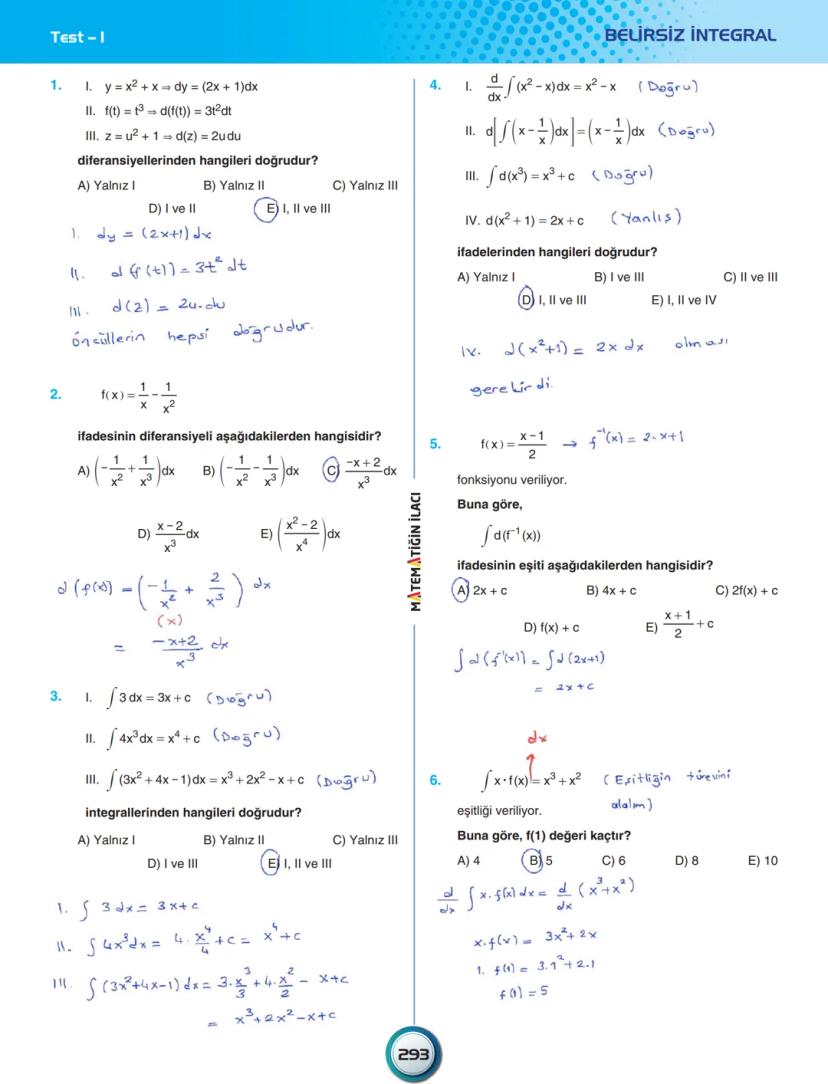 Test – I
BELİRSİZ İNTEGRAL
1. I. y = x² + x ⇒ dy = (2x + 1)dx
II. f(t) = t³ ⇒ d(f(t)) = 3t²dt
III. z = u² + 1 ⇒ d(z) = 2udu
diferansiyellerinden hangileri doğrudur?
A) Yalnız I B) Yalnız II C) Yalnız III
D) I ve II E) I, II ve III
I. dy = (2x+1)dx
II. d(f(t)) = 3t² dt
III. d(z) = 2u.du
öncüllerin hepsi doğrudur.
2. f(x) = 1/x - 1/x²
ifadesinin diferansiyeli aşağıdakilerden hangisidir?
A) (-1/x² + 1/x³)dx B) (-1/x² - 1/x³)dx C) (-x+2)/x³ dx
D) (x-2)/x³ dx E) ((x²-2)/x⁴)dx
d(f(x)) = (-1/x² + 2/x³) dx
(x)
= (-x+2)/x³ . dx
3. I. ∫3 dx = 3x + c (Doğru)
II. ∫4x³dx = x⁴ + c (Doğru)
III. ∫(3x² + 4x – 1)dx = x³ + 2x² – x + c (Doğru)
integrallerinden hangileri doğrudur?
A) Yalnız I B) Yalnız II C) Yalnız III
D) I ve III E) I, II ve III
I. ∫3dx = 3x+c
II. ∫4x³dx = 4.x⁴/4 + c = x⁴+c
III. ∫(3x²+4x-1)dx = 3.x³/3 + 4.x²/2 - x+c
= x³+2x²-x+c
MATEMATİĞİN İLACI
4. I. d/dx ∫(x² – x)dx = x² – x (Doğru)
II. d[∫(x - 1/x)dx] = (x - 1/x)dx (Doğru)
III. ∫d(x³) = x³ + c (Doğru)
IV. d(x² + 1) = 2x + c (Yanlış)
ifadelerinden hangileri doğrudur?
A) Yalnız I B) I ve III C) II ve III
D) I, II ve III E) I, II ve IV
IV. d(x²+1) = 2x dx olması
gerekirdi.
5. f(x) = (x-1)/2 → f⁻¹(x) = 2.x+1
fonksiyonu veriliyor.
Buna göre,
∫d(f⁻¹(x))
ifadesinin eşiti aşağıdakilerden hangisidir?
A) 2x + c B) 4x + c C) 2f(x) + c
D) f(x) + c E) (x+1)/2 + c
∫d(f⁻¹(x)) = ∫d(2x+1)
= 2x+c
dx
6. ∫x·f(x) = x³ + x² (Eşitliğin türevini
alalım)
eşitliği veriliyor.
Buna göre, f(1) değeri kaçtır?
A) 4 B) 5 C) 6 D) 8 E) 10
d/dx ∫x.f(x)dx = d/dx (x³+x²)
x.f(x) = 3x²+2x
1.f(1) = 3.1²+2.1
f(1) = 5
293